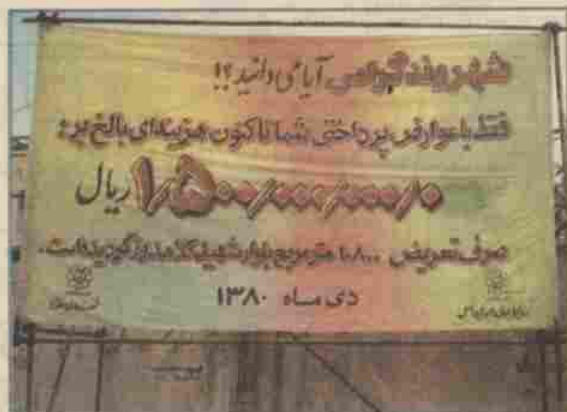 شهروند گرامی آیا می دانید؟!
فقط با عوارض پرداختی شما تاکنون هزینه‌ای بالغ بر:
۱/۵۰۰/۰۰۰/۰۰۰/۰ ریال
صرف تعریض ۱۰۸۰۰ متر مربع بلوار شهید کلاهدوز گردیده است.
دی مـاه ۱۳۸۰